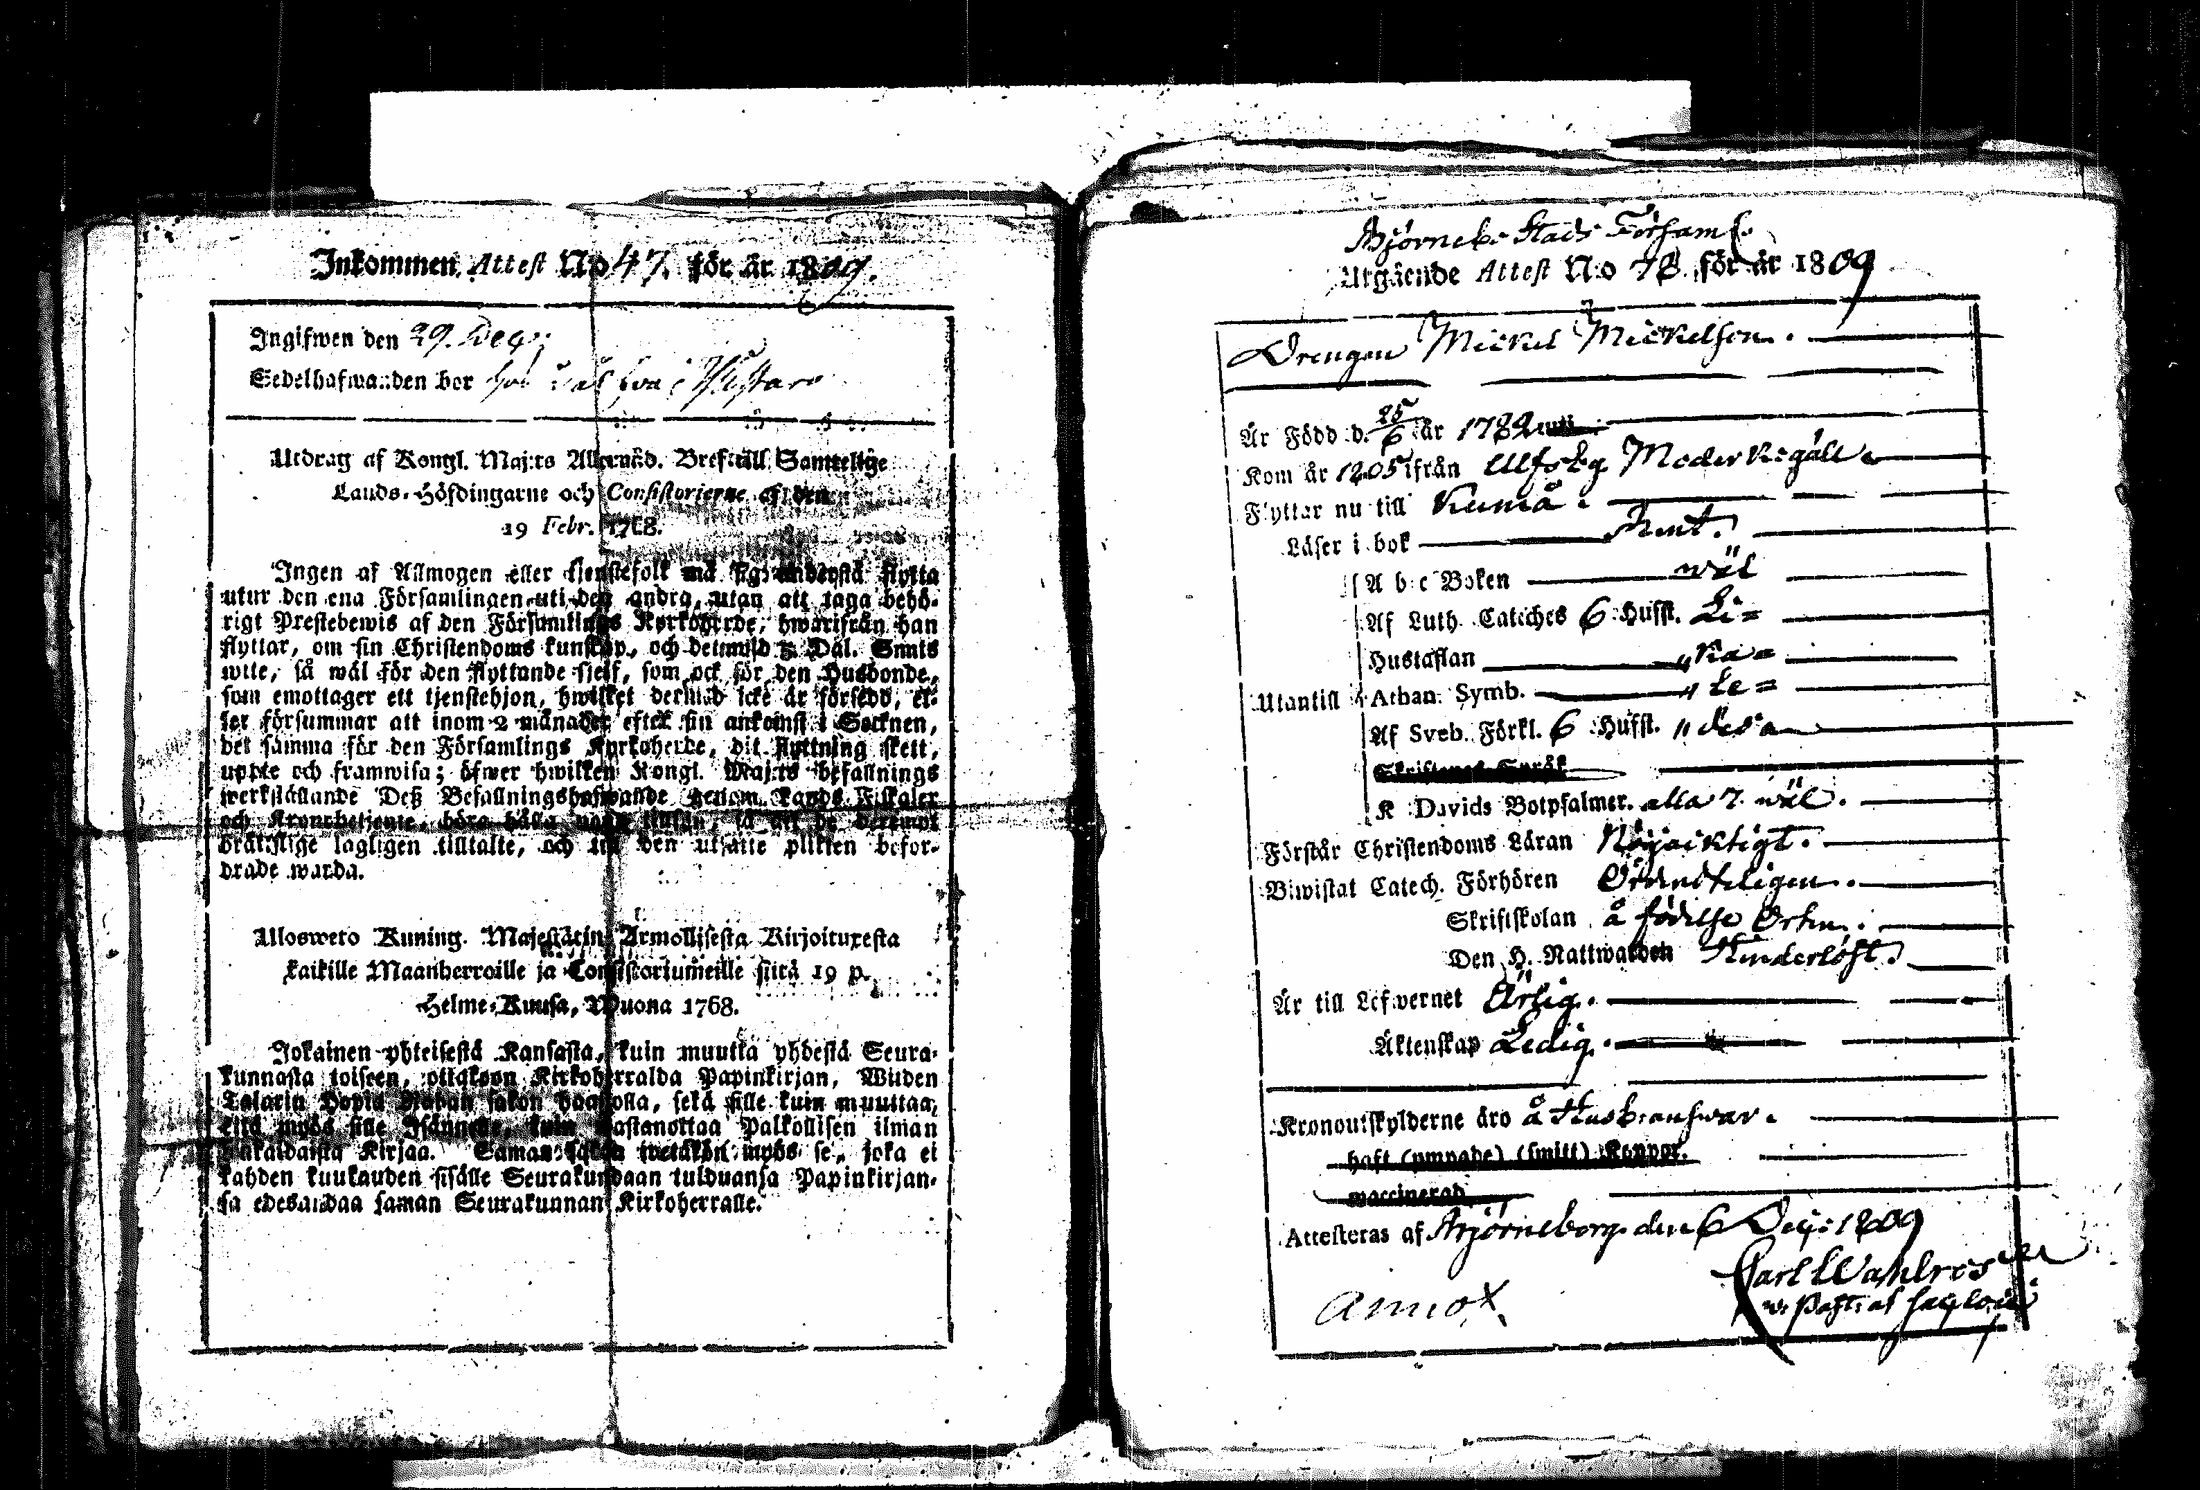 Inkommen Attest No 47. för år 1809.
Ingifwen den 29. Dec:
Sedelhafwanden bor hos
Utdrag af Kongl. Maj:ts Allernåd. Bref till Samtelige
Lands-Höfdingarne och Consistorierne af den
19 Febr. 1768.
Ingen af Allmogen eller tjenstefolk må flytta
utur den ena Församlingen uti den andra, utan att taga behö-
rigt Prestebewis af den Församlings Kyrkoherde, hwarifrån han
flyttar, om sin Christendoms kunskap, och Dal. Smts
wite, så wäl för den flyttande sjelf, som ock för den Husbonde,
som emottager ett tjenstehjon, hwilket dermed icke är försedd, el-
ler försummar att inom 2 månader efter sin ankomst i Socknen,
det samma för den Församlings Kyrkoherde, dit flyttning skett,
uppte och framwisa; öfwer hwilken Kongl. Maj:ts befallnings
werkställande Deß Befallningshafwande genom Lands Fiskaler
och Kronobetjente, böra hålla noga tillsyn, så att de deremot
brättslige lagligen tilltalte, och till den utsatte plikten befor-
drade warda.
Ulosweto Kuning. Majestätin Armollisesta Kirjoituxesta
kaikille Maanherroille ja Consistoriumeille siitä 19 p.
Helme-Kuusa, Wuona 1768.
Jokainen yhteisestä Kansasta, kuin muutta yhdestä Seura-
kunnasta toiseen, ottakoon Kirkoherralda Papinkirjan, Wiiden
Talarin Hopia Rahan sakon haastolla, sekä sille kuin muuttaa,
että myös sille Isännelle, kuin wastanottaa Palkollisen ilman
Kirjaa. Saman sakon wetäkön myös se, joka ei
kahden kuukauden sisälle Seurakundaan tulduansa Papinkirjan-
sa edesandaa saman Seurakunnan Kirkoherralle.
Björneb. Stads Församl.
Utgående Attest No 78. för år 1809
Drengen Mickel Mickelsson.
Är Född d. 25/6 år 1782
Kom år 1805 ifrån Ulfsby Moderkogäll
Flyttar nu till Kumå.
Läser i bok Rent.
A b c Boken wäl
Af Luth. Cateches 6 Hufst. Li=
Hustaflan "ka=
Utantill Athan. Symb. " le=
Af Sveb. Förkl. 6 Hufst. " desa
Skriftenes Språk
K Davids Botpsalmer. alla 7. wäl.
Förstår Christendoms Läran Nöjacktigt.
Biwistat Catech. Förhören Ordenteligen.
Skriftskolan å födelse Orten.
Den H. Nattwarden Hinderlöst.
Är till Lefwernet Ärlig.
Äktenskap Ledig.
Kronoutskylderne äro å Husb: answar.
haft (ympade) (smitt) Koppor.
vaccinerad
Attesteras af Björneborg den 6 Dec: 1809
Carl Wahlroos
v. Past: at Sacell
annot.